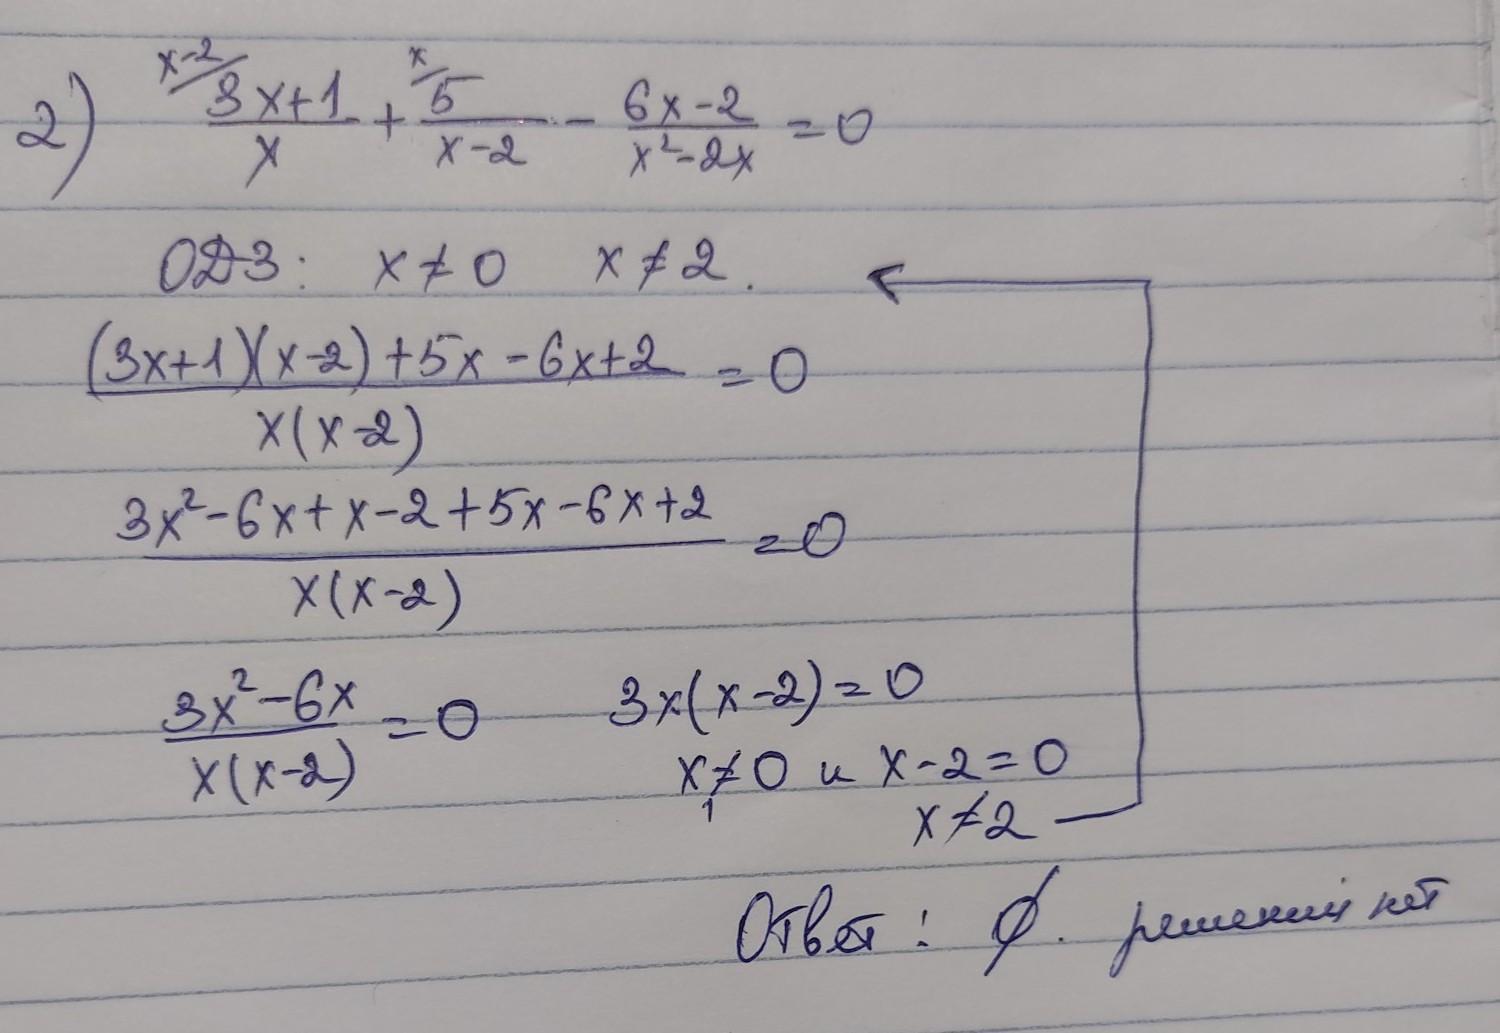 2) x-2/ (3x+1)/x + x/ 5/(x-2) - (6x-2)/(x²-2x) = 0
ОДЗ: x ≠ 0 x ≠ 2.
((3x+1)(x-2)+5x-6x+2)/(x(x-2)) = 0
(3x²-6x+x-2+5x-6x+2)/(x(x-2)) = 0
(3x²-6x)/(x(x-2)) = 0 3x(x-2)=0
x≠0 и x-2=0
x≠2
Ответ: ∅. решений нет